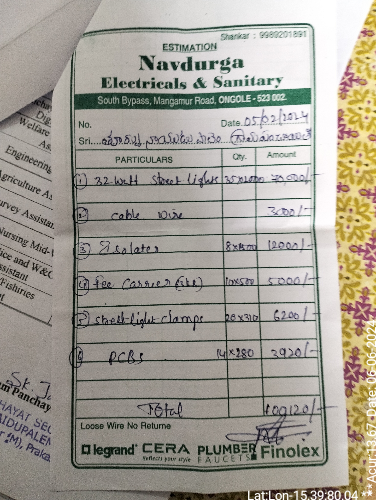 Shankar : 9989201891
ESTIMATION
Navdurga
Electricals & Sanitary
South Bypass, Mangamur Road, ONGOLE - 523 002.
No. Date 05/02/2024
Sri
PARTICULARS Qty. Amount
1 32 watt Street lights 35x2000 70,000/-
2 cable wire 3000/-
3 8x1500 12000/-
4 carrier 10x500 5000/-
5 street light clamps 20x310 6200/-
6 PCBS 14x280 3920/-
Total 100120/-
Loose Wire No Returne
legrand CERA PLUMBER Finolex
Reflects your style FAUCETS
Engineering
Agriculture As
Survey Assistan
Nursing Mid-
ice and W&C
Assistant
/Fisheries
Lat Lon - 15.39:80.04
06-06-2024